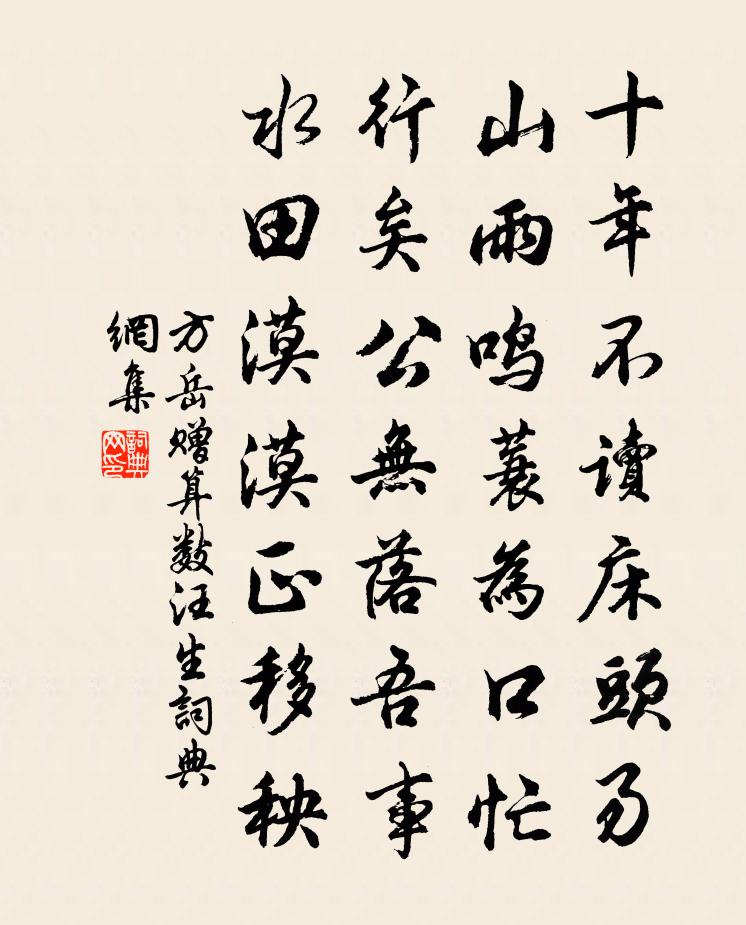 十年不讀床頭易
山雨鳴蓑為口忙
行矣公無落吾事
水田漠漠正移秧
方岳贈算數汪生詞典
網集
詞典
网印